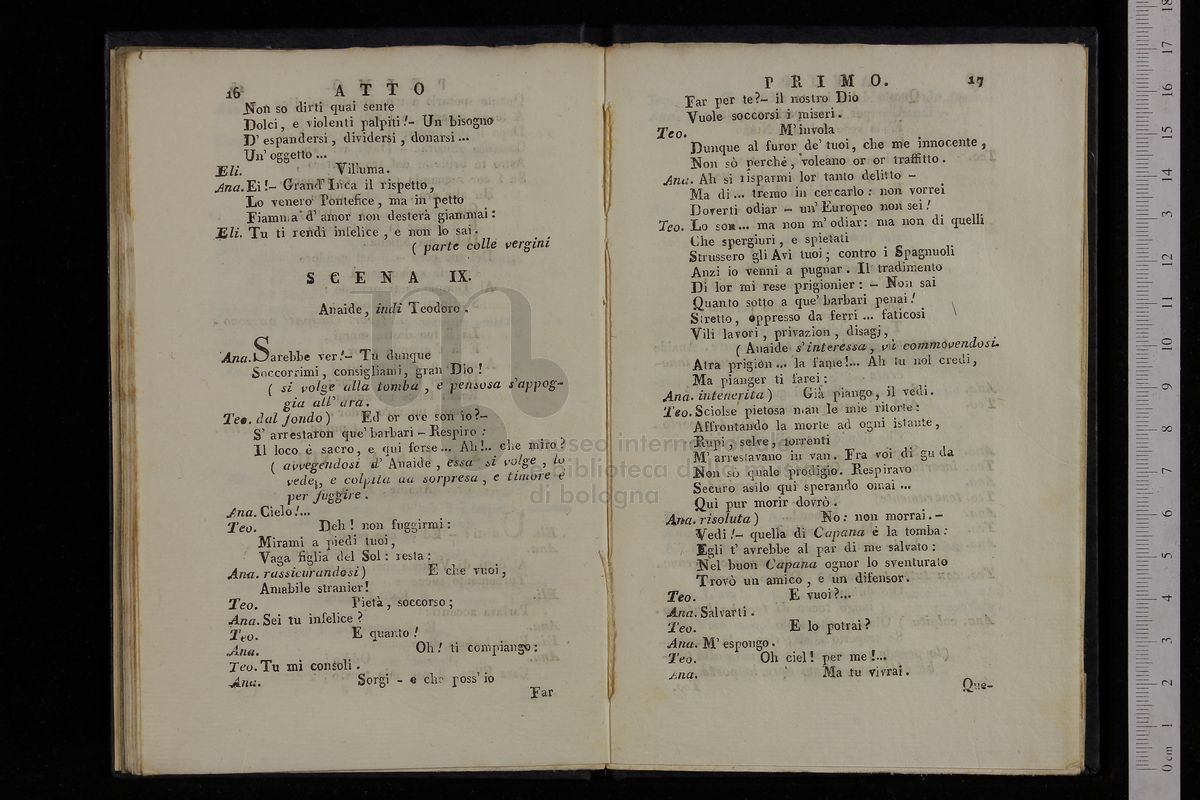 16 ATTO
Non so dirti quai sente
Dolci, e violenti palpiti!- Un bisogno
D' espandersi, dividersi, donarsi ...
Un' oggetto ...
Eli. Vill'uma.
Ana. Ei!- Grand' Inca il rispetto,
Lo venero Pontefice, ma in petto
Fiamma d' amor non desterà giammai:
Eli. Tu ti rendi infelice, e non lo sai.
( parte colle vergini
SCENA IX.
Anaide, indi Teodoro.
Ana. Sarebbe ver!- Tu dunque
Soccorrimi, consigliami, gran Dio!
( si volge alla tomba, e pensosa s'appog-
gia all' ara.
Teo. dal fondo) Ed or ove son io?-
S' arrestaron que' barbari - Respiro:
Il loco è sacro, e qui forse... Ah!.. che miro?
( avvegendosi d' Anaide, essa si volge, lo
vede, e colpita da sorpresa, e timore è
per fuggire.
Ana. Cielo!...
Teo. Deh! non fuggirmi:
Mirami a piedi tuoi,
Vaga figlia del Sol: resta:
Ana. rassicurandosi) E che vuoi,
Amabile stranier!
Teo. Pietà, soccorso;
Ana. Sei tu infelice?
Teo. E quanto!
Ana. Oh! ti compiango:
Teo. Tu mi consoli.
Ana. Sorgi - e che poss' io
Far
PRIMO. 17
Far per te?- il nostro Dio
Vuole soccorsi i miseri.
Teo. M' invola
Dunque al furor de' tuoi, che me innocente,
Non sò perchè, voleano or or traffitto.
Ana. Ah si risparmi lor tanto delitto -
Ma di... tremo in cercarlo: non vorrei
Doverti odiar - un' Europeo non sei!
Teo. Lo son... ma non m' odiar: ma non di quelli
Che spergiuri, e spietati
Strussero gli Avi tuoi; contro i Spagnuoli
Anzi io venni a pugnar. Il tradimento
Di lor mi rese prigionier: - Non sai
Quanto sotto a que' barbari penai!
Stretto, oppresso da ferri ... faticosi
Vili lavori, privazion, disagj,
( Anaide s'interessa, và commovendosi.
Atra prigion ... la fame!... Ah tu nol credi,
Ma pianger ti farei:
Ana. intenerita) Già piango, il vedi.
Teo. Sciolse pietosa man le mie ritorte:
Affrontando la morte ad ogni istante,
Rupi, selve, torrenti
M' arrestavano in van. Fra voi di guida
Non sò quale prodigio. Respiravo
Securo asilo qui sperando omai ...
Qui pur morir dovrò.
Ana. risoluta) No: non morrai.-
Vedi!- quella di Capana è la tomba:
Egli t' avrebbe al par di me salvato:
Nel buon Capana ognor lo sventurato
Trovò un amico, e un difensor.
Teo. E vuoi?...
Ana. Salvarti.
Teo. E lo potrai?
Ana. M' espongo.
Teo. Oh ciel! per me!...
Ana. Ma tu vivrai.
Que-
museo internazionale
e biblioteca della musica
di bologna
0 cm 1 2 3 4 5 6 7 8 9 10 11 12 13 14 15 16 17 18